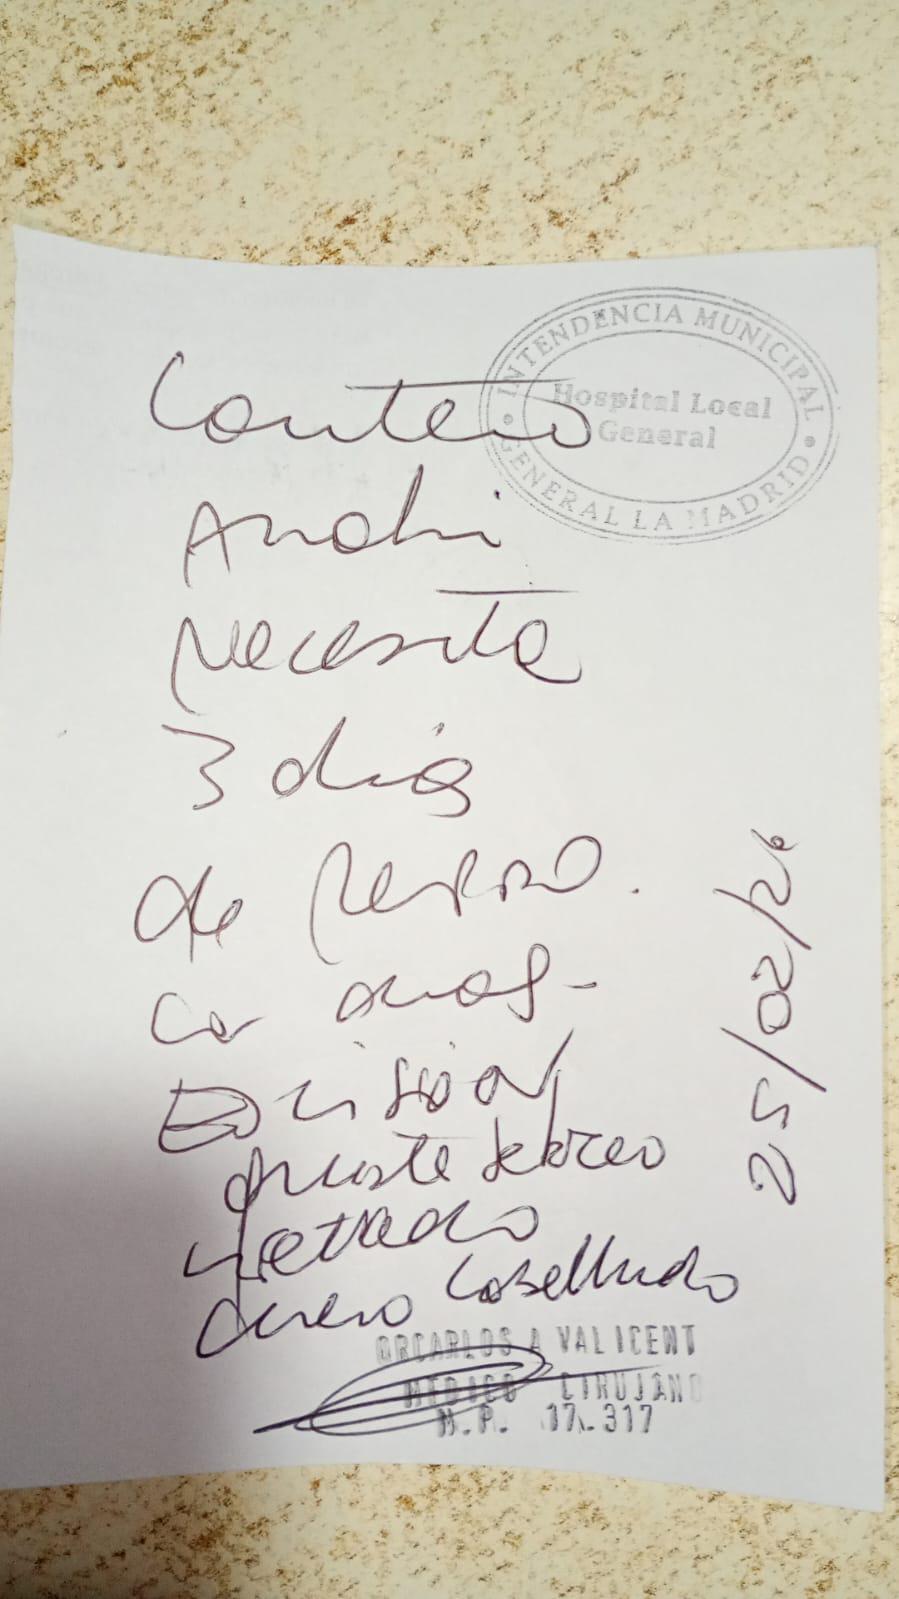 INTENDENCIA MUNICIPAL
Hospital Local
General
GENERAL LA MADRID
Necesita
3 dias
de reposo.
Escision
quiste sebaceo
cuero cabelludo
25/02/26
DR CARLOS A VALICENT
MEDICO CIRUJANO
M.P. 17.317